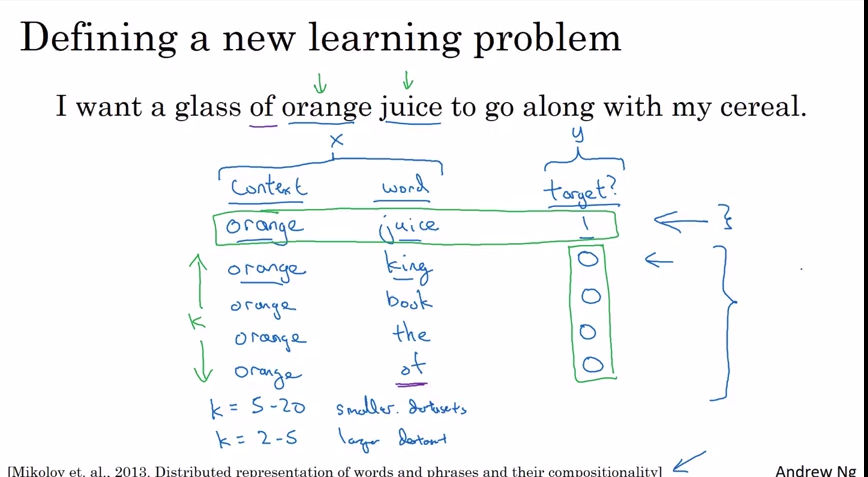 Defining a new learning problem
I want a glass of orange juice to go along with my cereal.
x y
Context word target?
orange juice 1
orange king 0
orange book 0
k orange the 0
orange of 0
k = 5-20 smaller datasets
k = 2-5 larger dataset
[Mikolov et. al., 2013. Distributed representation of words and phrases and their compositionality] Andrew Ng